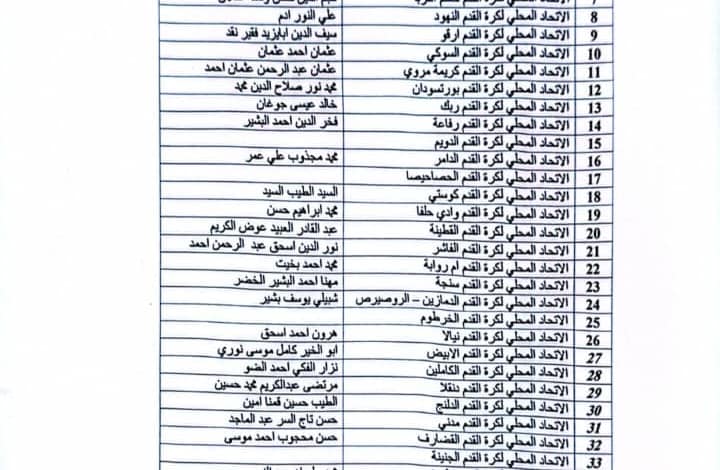 8 الاتحاد المحلي لكرة القدم النهود علي النور ادم
9 الاتحاد المحلي لكرة القدم ارقو سيف الدين ابايزيد فقير نقد
10 الاتحاد المحلي لكرة القدم السوكي عثمان احمد عثمان
11 الاتحاد المحلي لكرة القدم كريمة مروي عثمان عبد الرحمن عثمان احمد
12 الاتحاد المحلي لكرة القدم بورتسودان محمد نور صلاح الدين محمد
13 الاتحاد المحلي لكرة القدم ربك خالد عيسى جوغان
14 الاتحاد المحلي لكرة القدم رفاعة فخر الدين احمد البشير
15 الاتحاد المحلي لكرة القدم الدويم
16 الاتحاد المحلي لكرة القدم الدامر محمد مجذوب علي عمر
17 الاتحاد المحلي لكرة القدم الحصاحيصا
18 الاتحاد المحلي لكرة القدم كوستي السيد الطيب السيد
19 الاتحاد المحلي لكرة القدم وادي حلفا محمد ابراهيم حسن
20 الاتحاد المحلي لكرة القدم القطينة عبد القادر العبيد عوض الكريم
21 الاتحاد المحلي لكرة القدم الفاشر نور الدين اسحق عبد الرحمن احمد
22 الاتحاد المحلي لكرة القدم ام روابة محمد احمد بخيت
23 الاتحاد المحلي لكرة القدم سنجة مهنا احمد البشير الخضر
24 الاتحاد المحلي لكرة القدم الدمازين – الروصيرص شبيلي يوسف بشير
25 الاتحاد المحلي لكرة القدم الخرطوم
26 الاتحاد المحلي لكرة القدم نيالا هرون احمد اسحق
27 الاتحاد المحلي لكرة القدم الابيض ابو الخير كامل موسى نوري
28 الاتحاد المحلي لكرة القدم الكاملين نزار الفكي احمد الضو
29 الاتحاد المحلي لكرة القدم دنقلا مرتضى عبدالكريم محمد حسين
30 الاتحاد المحلي لكرة القدم الدلنج الطيب حسين قمنا امين
31 الاتحاد المحلي لكرة القدم مدني حسن تاج السر عبد الماجد
32 الاتحاد المحلي لكرة القدم القضارف حسن محجوب احمد موسى
33 الاتحاد المحلي لكرة القدم الجنينة